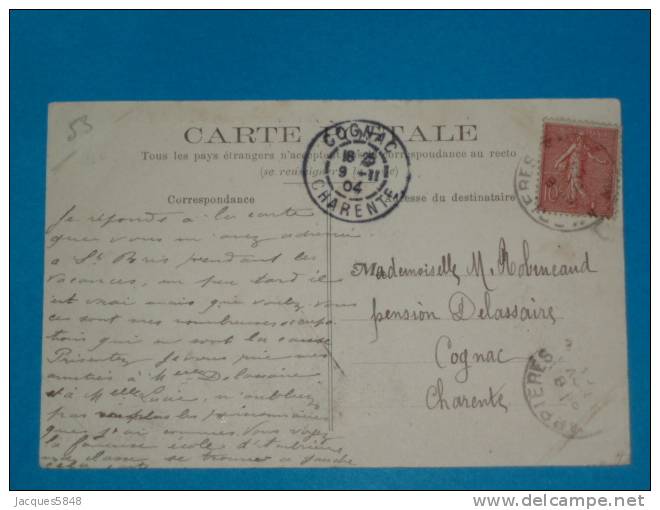 53
CARTE POSTALE
Tous les pays étrangers n'acceptent pas la correspondance au recto
(se renseigner à la poste)
Correspondance
Adresse du destinataire
COGNAC
18 25
9 -11
04
CHARENTE
Je réponds à la carte
que vous m'avez adressée
à St Bris pendant les
vacances, un peu tard il
est vrai mais que voulez vous
ce sont mes nombreuses occupa
tions qui en sont la cause
Présentez je vous prie mes
amitiés à Melle Delassaire
et à Melle n'oubliez
pas les
que j'ai connues. Vous voyez
la fameuse école d'
ma classe se trouve à gauche
Mademoiselle M. Robineaud
pension Delassaire
Cognac
Charente
10
Jacques5848
delcampe.net